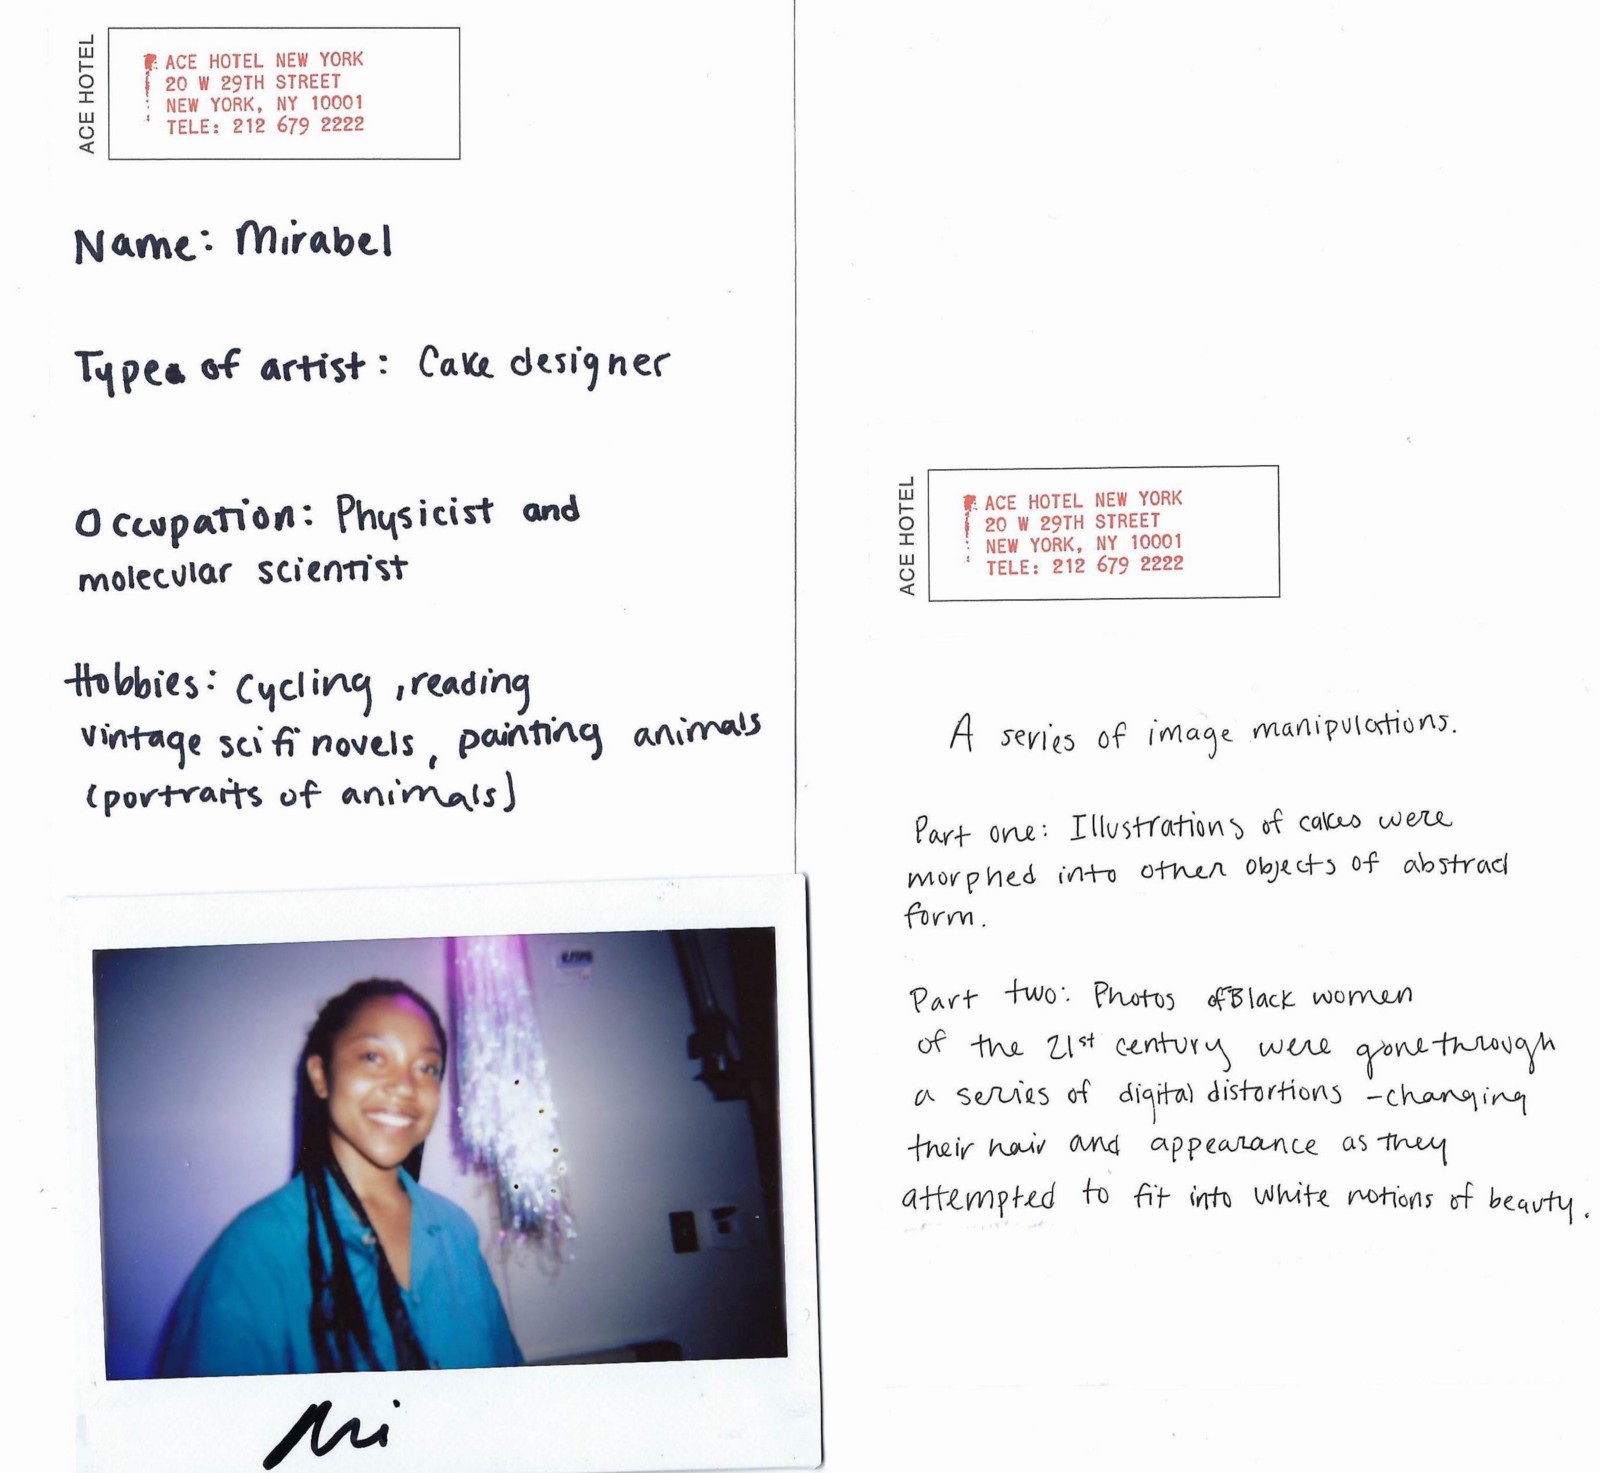 ACE HOTEL
ACE HOTEL NEW YORK
20 W 29TH STREET
NEW YORK, NY 10001
TELE: 212 679 2222
Name: Mirabel
Type of artist: Cake designer
Occupation: Physicist and
molecular scientist
Hobbies: Cycling, reading
vintage sci fi novels, painting animals
(portraits of animals)
Mi
ACE HOTEL
ACE HOTEL NEW YORK
20 W 29TH STREET
NEW YORK, NY 10001
TELE: 212 679 2222
A series of image manipulations.
Part one: Illustrations of cakes were
morphed into other objects of abstract
form.
Part two: Photos of Black women
of the 21st century were gone through
a series of digital distortions - changing
their hair and appearance as they
attempted to fit into white notions of beauty.